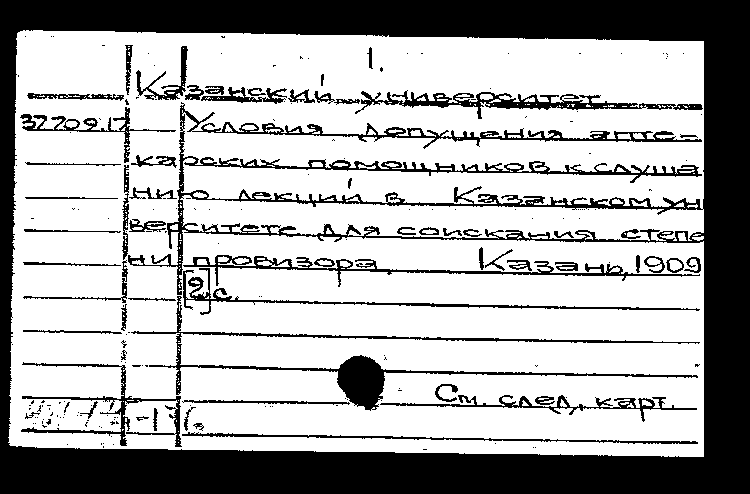 1.
Казанский университет
37709.17 Условия допущения апте-
карских помощников к слуша
нию лекций в Казанском уни
верситете для соискания степе
ни провизора. Казань, 1909
[2] с.
См. след. карт.